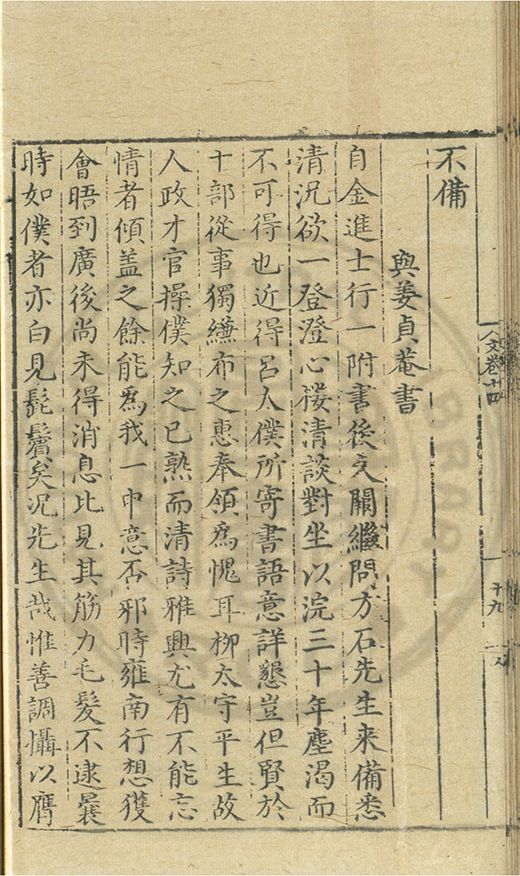 不備
與姜貞菴書
自金進士行一附書後文關繼問方石先生来備悉
清況欲一登澄心樓清談對坐以浣三十年塵渴而
不可得也近得呂太僕所寄書語意詳懇豈但賢於
十部從事獨縑布之惠奉領為愧耳柳太守平生故
人政才官操僕知之已熟而清詩雅興尤有不能忘
情者傾盖之餘能為我一申意否邪時雍南行想獲
會晤到廣後尚未得消息比見其筋力毛髮不逮曩
時如僕者亦白見髭鬢矣况先生哉惟善調懾以膺
文卷十四
十九